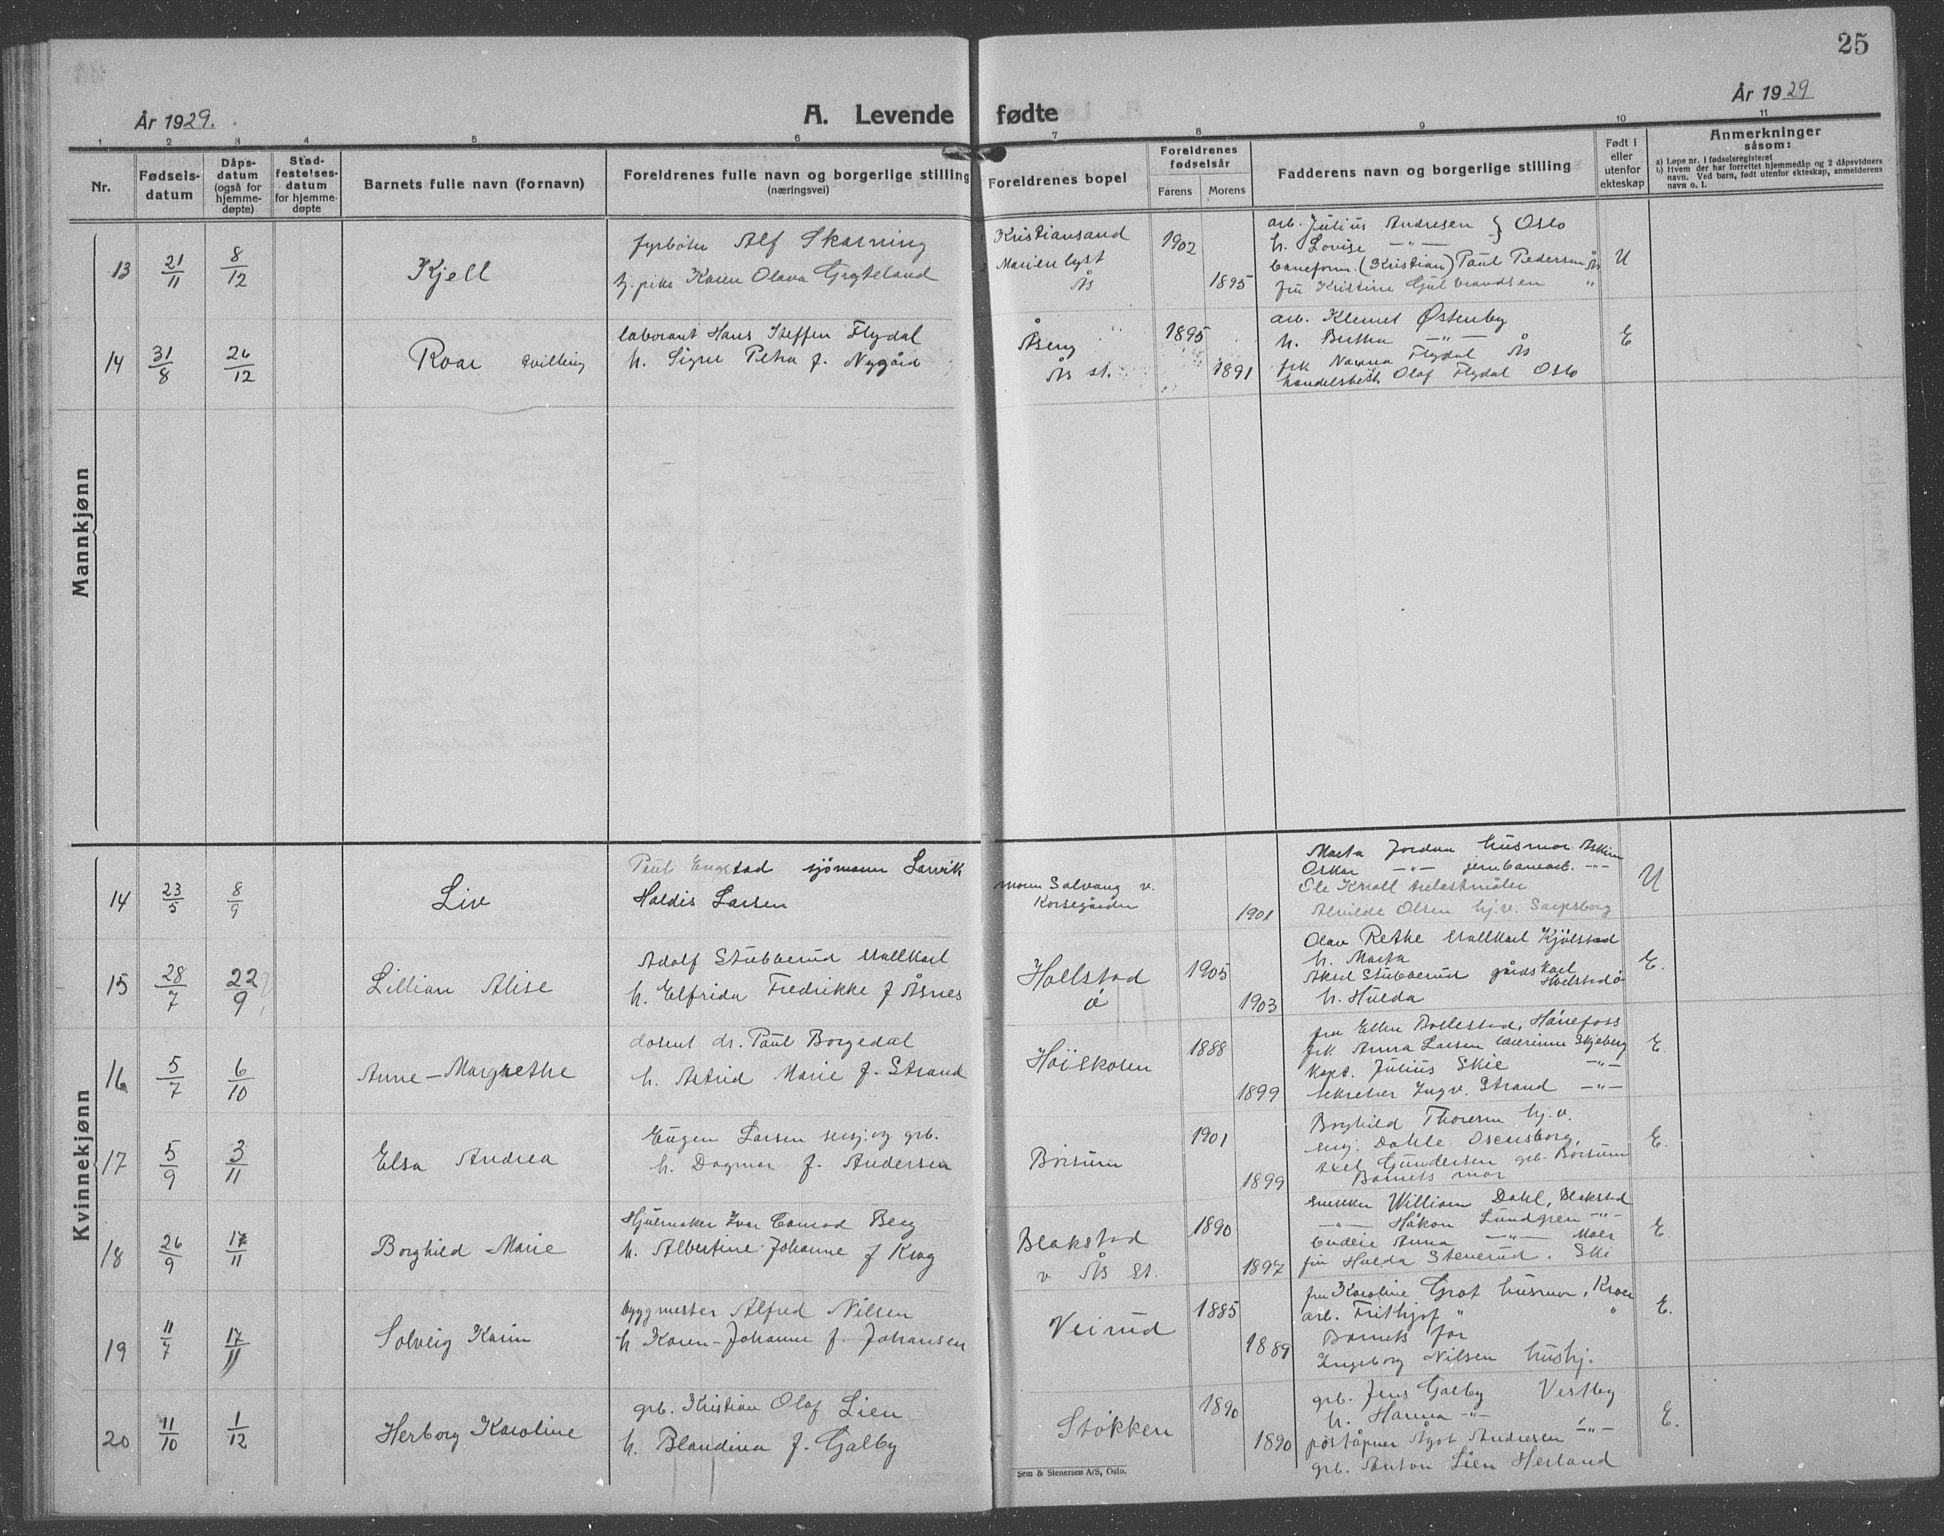 25
År 1929.
A. Levende fødte
År 1929
1 2 3 4 5 6 7 8 9 10 11
Nr.
Fødsels-
datum
Dåps-
datum
(også for
hjemme-
døpte)
Stad-
festelses-
datum
for hjemme-
døpte
Barnets fulle navn (fornavn)
Foreldrenes fulle navn og borgerlige stilling
(næringsvei)
Foreldrenes bopel
Foreldrenes
fødselsår
Farens Morens
Fadderens navn og borgerlige stilling
Født i
eller
utenfor
ekteskap
Anmerkninger
såsom:
a) Løpe nr. i fødselsregisteret
b) Hvem der har forrettet hjemmedåp og 2 dåpsvidners
navn. Ved barn, født utenfor ekteskap, anmelderens
navn o. l.
Mannkjønn
13 21/11 8/12
Kjell
fyrbøter Alf Skarning
Karen Olava Grøteland
Kristiansand
Marienlyst
Ås
1902
1895
arb. Julius Andresen } Oslo
h. Lovise -"-
baneform. (Kristian) Paul Pedersen Ås
fru Kristine Gulbrandsen "
U
14 31/8 26/12
Roar tvilling
laborant Hans Steffen Flydal
h. Signe Petra f. Nygård
Åseng
Ås st.
1895
1891
arb. Klemet Østenby
h. Bertha -"-
frk Nanna Flydal Ås
handelsbest. Olaf Flydal Oslo
E
Kvinnekjønn
14 23/5 8/9
Liv
Paul Engstad sjømann Larvik
Haldis Larsen
moren Solvang v.
Korsegården
1901
Marta Jordan husmor Askim
Oskar -"- jernbanearb. -"-
Ole Kroll
Alvilde Olsen hj.v. Sarpsborg
U
15 28/7 22/9
Lillian Alise
Adolf Stubberud stallkarl
h. Elfrida Fredrikke f Åsnes
Holstad
ø
1905
1903
Olav Rethe stallkarl Kjølstad
h. Marta
Aksel Stubberud gårdskarl
Holstad ø
h. Hulda
E.
16 5/7 6/10
Anne-Margrethe
dosent dr. Paul Borgedal
h. Astrid Marie f. Strand
Høiskolen
1888
1899
fru Ellen Bollestad, Hønefoss
frk. Anna Larsen lærerinne Skjeberg
kapt. Julius Skie -"-
sekretær Ingv. Strand -"-
E.
17 5/9 3/11
Elsa Andrea
Eugen Larsen sersj. og grb.
h. Dagmar f. Andersen
Borsum
1901
1899
Borghild Thoresen hj.v.
serj. Dahle Oscarsborg,
Axel Gundersen grb. Borsum
Barnets mor
E.
18 26/9 17/11
Borghild Marie
Hjulmaker Ivar Conrad Berg
h. Albertine Johanne f Krog
Blakstad
v Ås st.
1890
1897
snekker William Dahl, Blakstad
-"- Håkon Lundgren -"-
budeie Anna -"- Moer
fru Hulda Stenerud. Ski
E
19 11/7 17/11
Solveig Karin
byggmester Alfred Nilsen
h. Karen-Johanne f. Johansen
Veirud
1885
1889
fru Karoline Grot husmor, Kroer
arb. Frithjof " "
Barnets far
Ingeborg Nilsen hushj.
E.
20 11/10 1/12
Herborg Karoline
grb. Kristian Olaf Lien
h. Blandina f. Galby
Støkken
1890
1890
grb. Jens Galby Vestby
h. Hanna -"-
poståpner Ågot Andresen -"-
grb. Anton Lien Herland
E.
Sem & Stenersen A/S, Oslo.